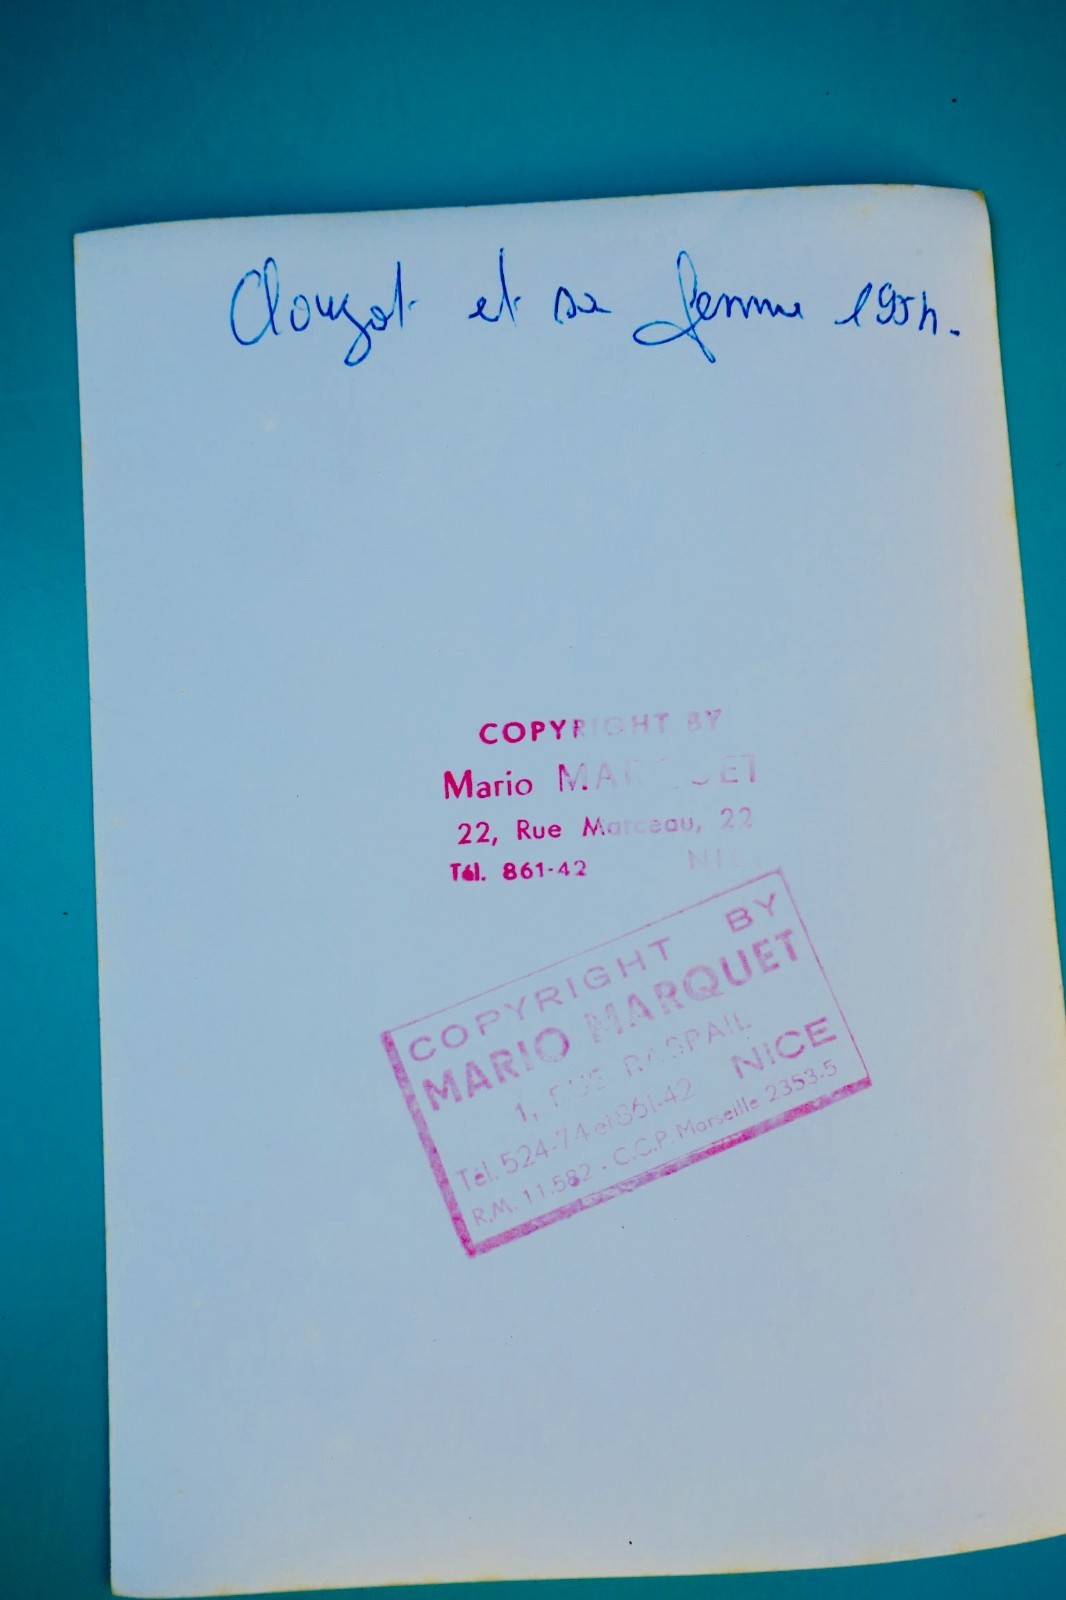 Clouzot et sa femme 1954.
COPYRIGHT BY
Mario MARQUET
22, Rue Marceau, 22
Tél. 861-42 NICE
COPYRIGHT BY
MARIO MARQUET
1, RUE RASPAIL
NICE
Tél. 524-74 et 861-42
R.M. 11.582 - C.C.P. Marseille 2353-5